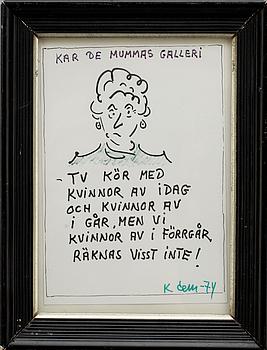 KAR DE MUMMAS GALLERI
- TV KÖR MED
KVINNOR AV IDAG
OCH KVINNOR AV
I GÅR, MEN VI
KVINNOR AV I FÖRRGÅR,
RÄKNAS VISST INTE!
K dem-74